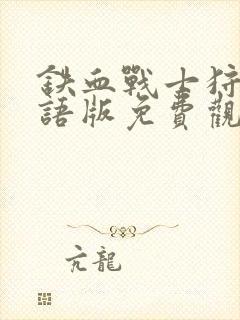 鉄血戰士狩
語版免費觀
亢龍